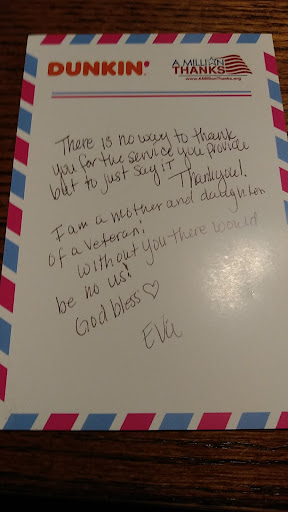 DUNKIN'
A MILLION
THANKS
www.AMillionThanks.org
There is no way to thank
you for the service you provide
but to just say it!
Thankyou!
I am a mother and daughter
of a veteran!
Without you there would
be no us!
God bless ♡
Eva